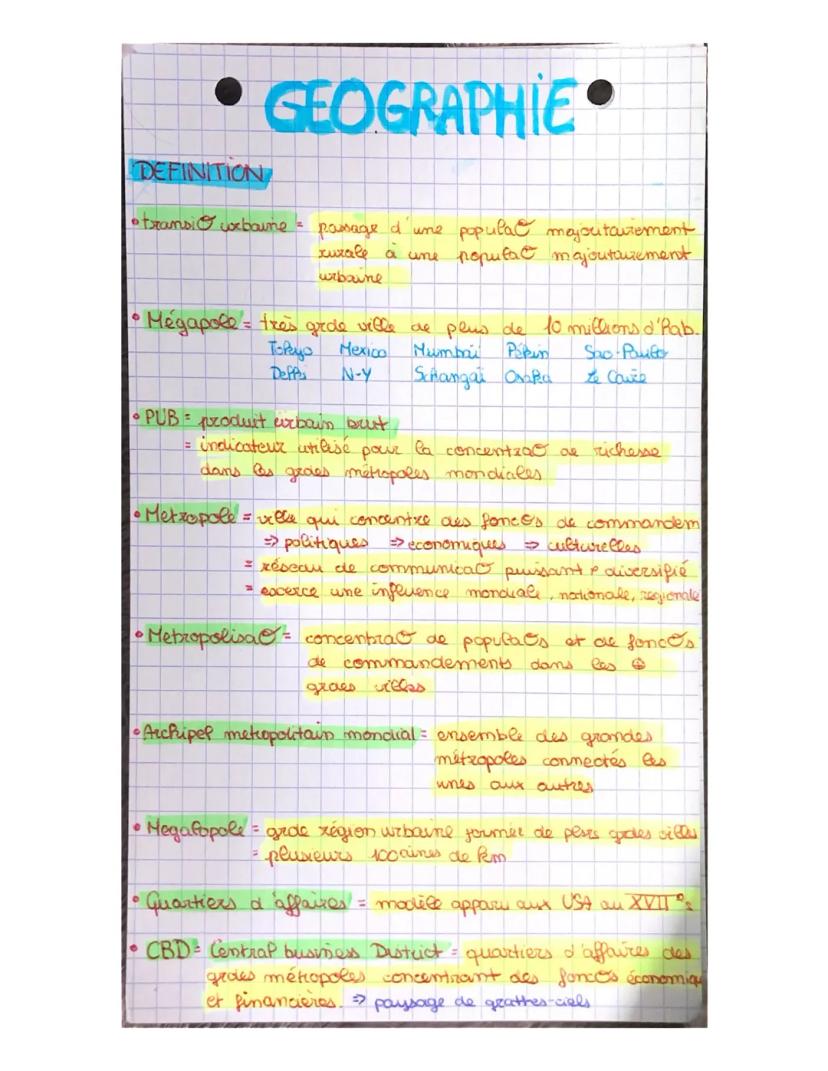 GEOGRAPHIE
DEFINITION
• transiO urbaine = passage d'une populaO majoutairement
rurale à une populaO majoutairement
urbaine
• Mégapole = très grde ville de plus de 10 millions d'hab.
Tokyo Mexico Mumbaï Pékin Sao-Paulo
Delhi N-Y Schangaï Osaka Le Caire
• PUB = produit urbain brut
= indicateur utilisé pour la concentraO de richesse
dans les grdes métropoles mondiales
• Metropole = ville qui concentre des foncOs de commandem
=> politiques => economiques => culturelles
= réseau de communicaO puissant & diversifié
= excerce une influence mondiale, nationale, regionale
• MetropolisaO = concentraO de populaOs et de foncOs
de commandements dans les ⊕
grdes villes
• Archipel metropolitain mondial = ensemble des grandes
métropoles connectés les
unes aux autres
• Megalopole = grde région urbaine formée de plsrs grdes villes
= plusieurs 100aines de km
• Quartiers d'affaires = modèle apparu aux USA au XVIIe s
• CBD = Central business District = quartiers d'affaires des
grdes métropoles concentrant des foncOs économiqu
et financières. => paysage de grattes-ciels